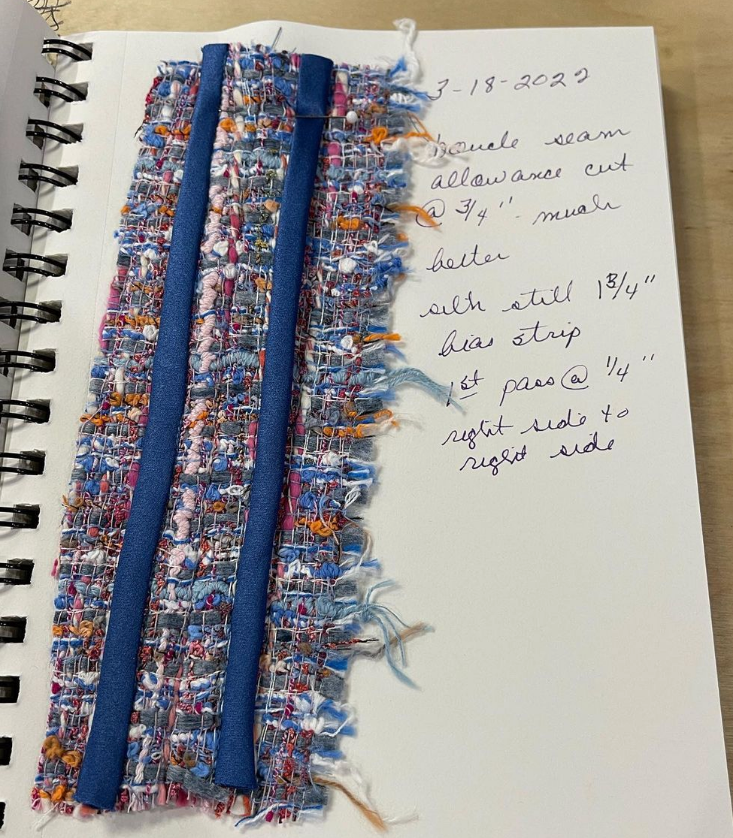 3-18-2022
boucle seam
allowance cut
@ 3/4" much
better
silk still 1 3/4"
bias strip
1st pass @ 1/4"
right side to
right side